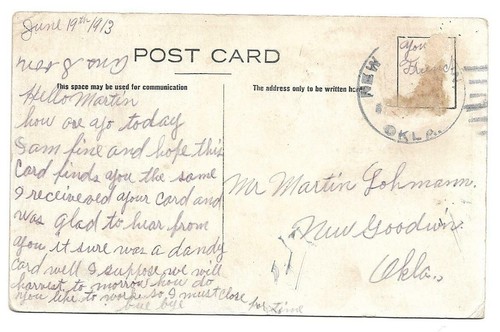 June 19th 1913
POST CARD
This space may be used for communication
The address only to be written here
Hello Martin
how are yo today
I am fine and hope this
Card finds you the same
I receieved your Card and
was glad to hear from
you it sure was a dandy
Card well I suppose we will
harvest to morrow how do
you like to work so I must Close
bye bye
for time
you
NEW
OKLA.
Mr Martin Lohmann.
New Goodwin.
Okla.